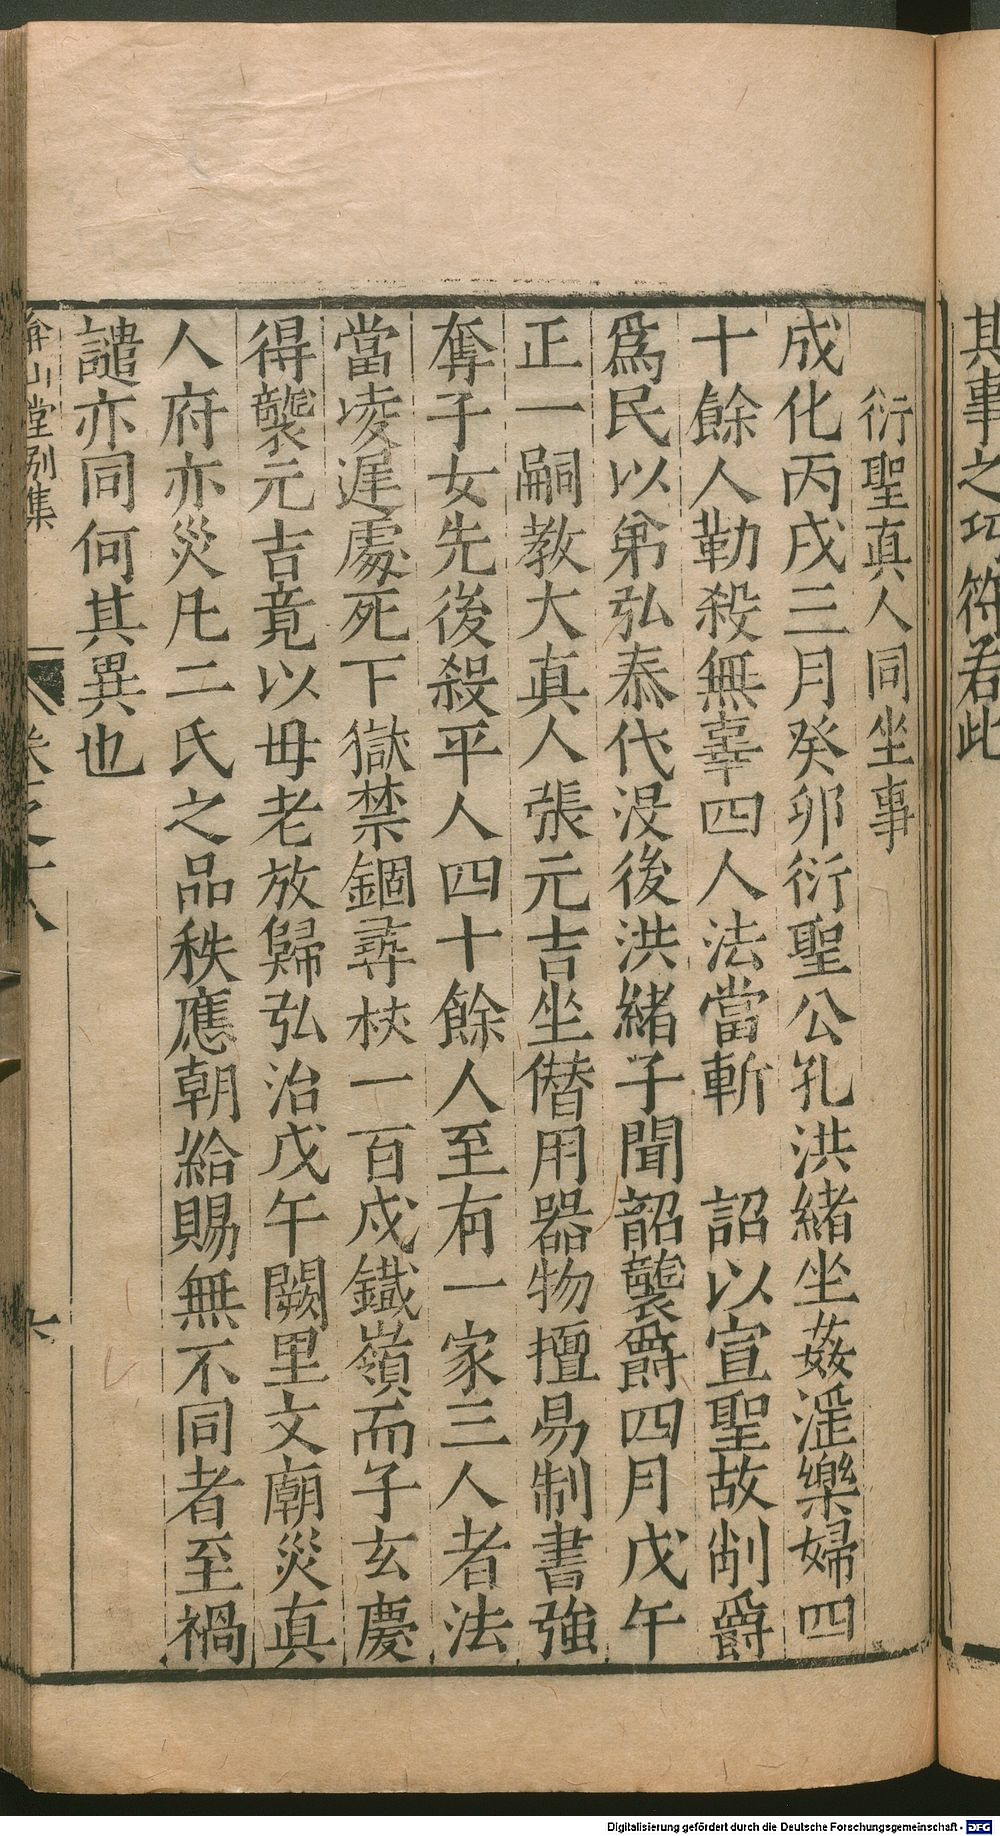 其事之巧符若此
衍聖真人同坐事
成化丙戌三月癸卯衍聖公孔洪緒坐姦淫樂婦四
十餘人勒殺無辜四人法當斬　詔以宣聖故削爵
爲民以弟弘泰代没後洪緒子聞韶襲爵四月戊午
正一嗣教大真人張元吉坐僣用器物擅易制書強
奪子女先後殺平人四十餘人至有一家三人者法
當凌遲處死下獄禁錮尋杖一百戍鐵嶺而子玄慶
得襲元吉竟以母老放歸弘治戊午闕里文廟災真
人府亦災凡二氏之品秩應朝給賜無不同者至禍
譴亦同何其異也
弇山堂別集
卷之十八
Digitalisierung gefördert durch die Deutsche Forschungsgemeinschaft - DFG